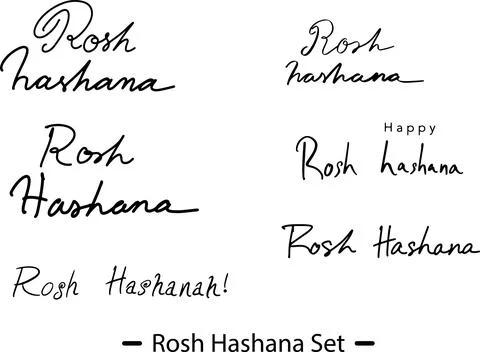 Rosh
hashana
Rosh
Hashana
Rosh Hashanah!
Rosh
hashana
Happy
Rosh hashana
Rosh Hashana
— Rosh Hashana Set —